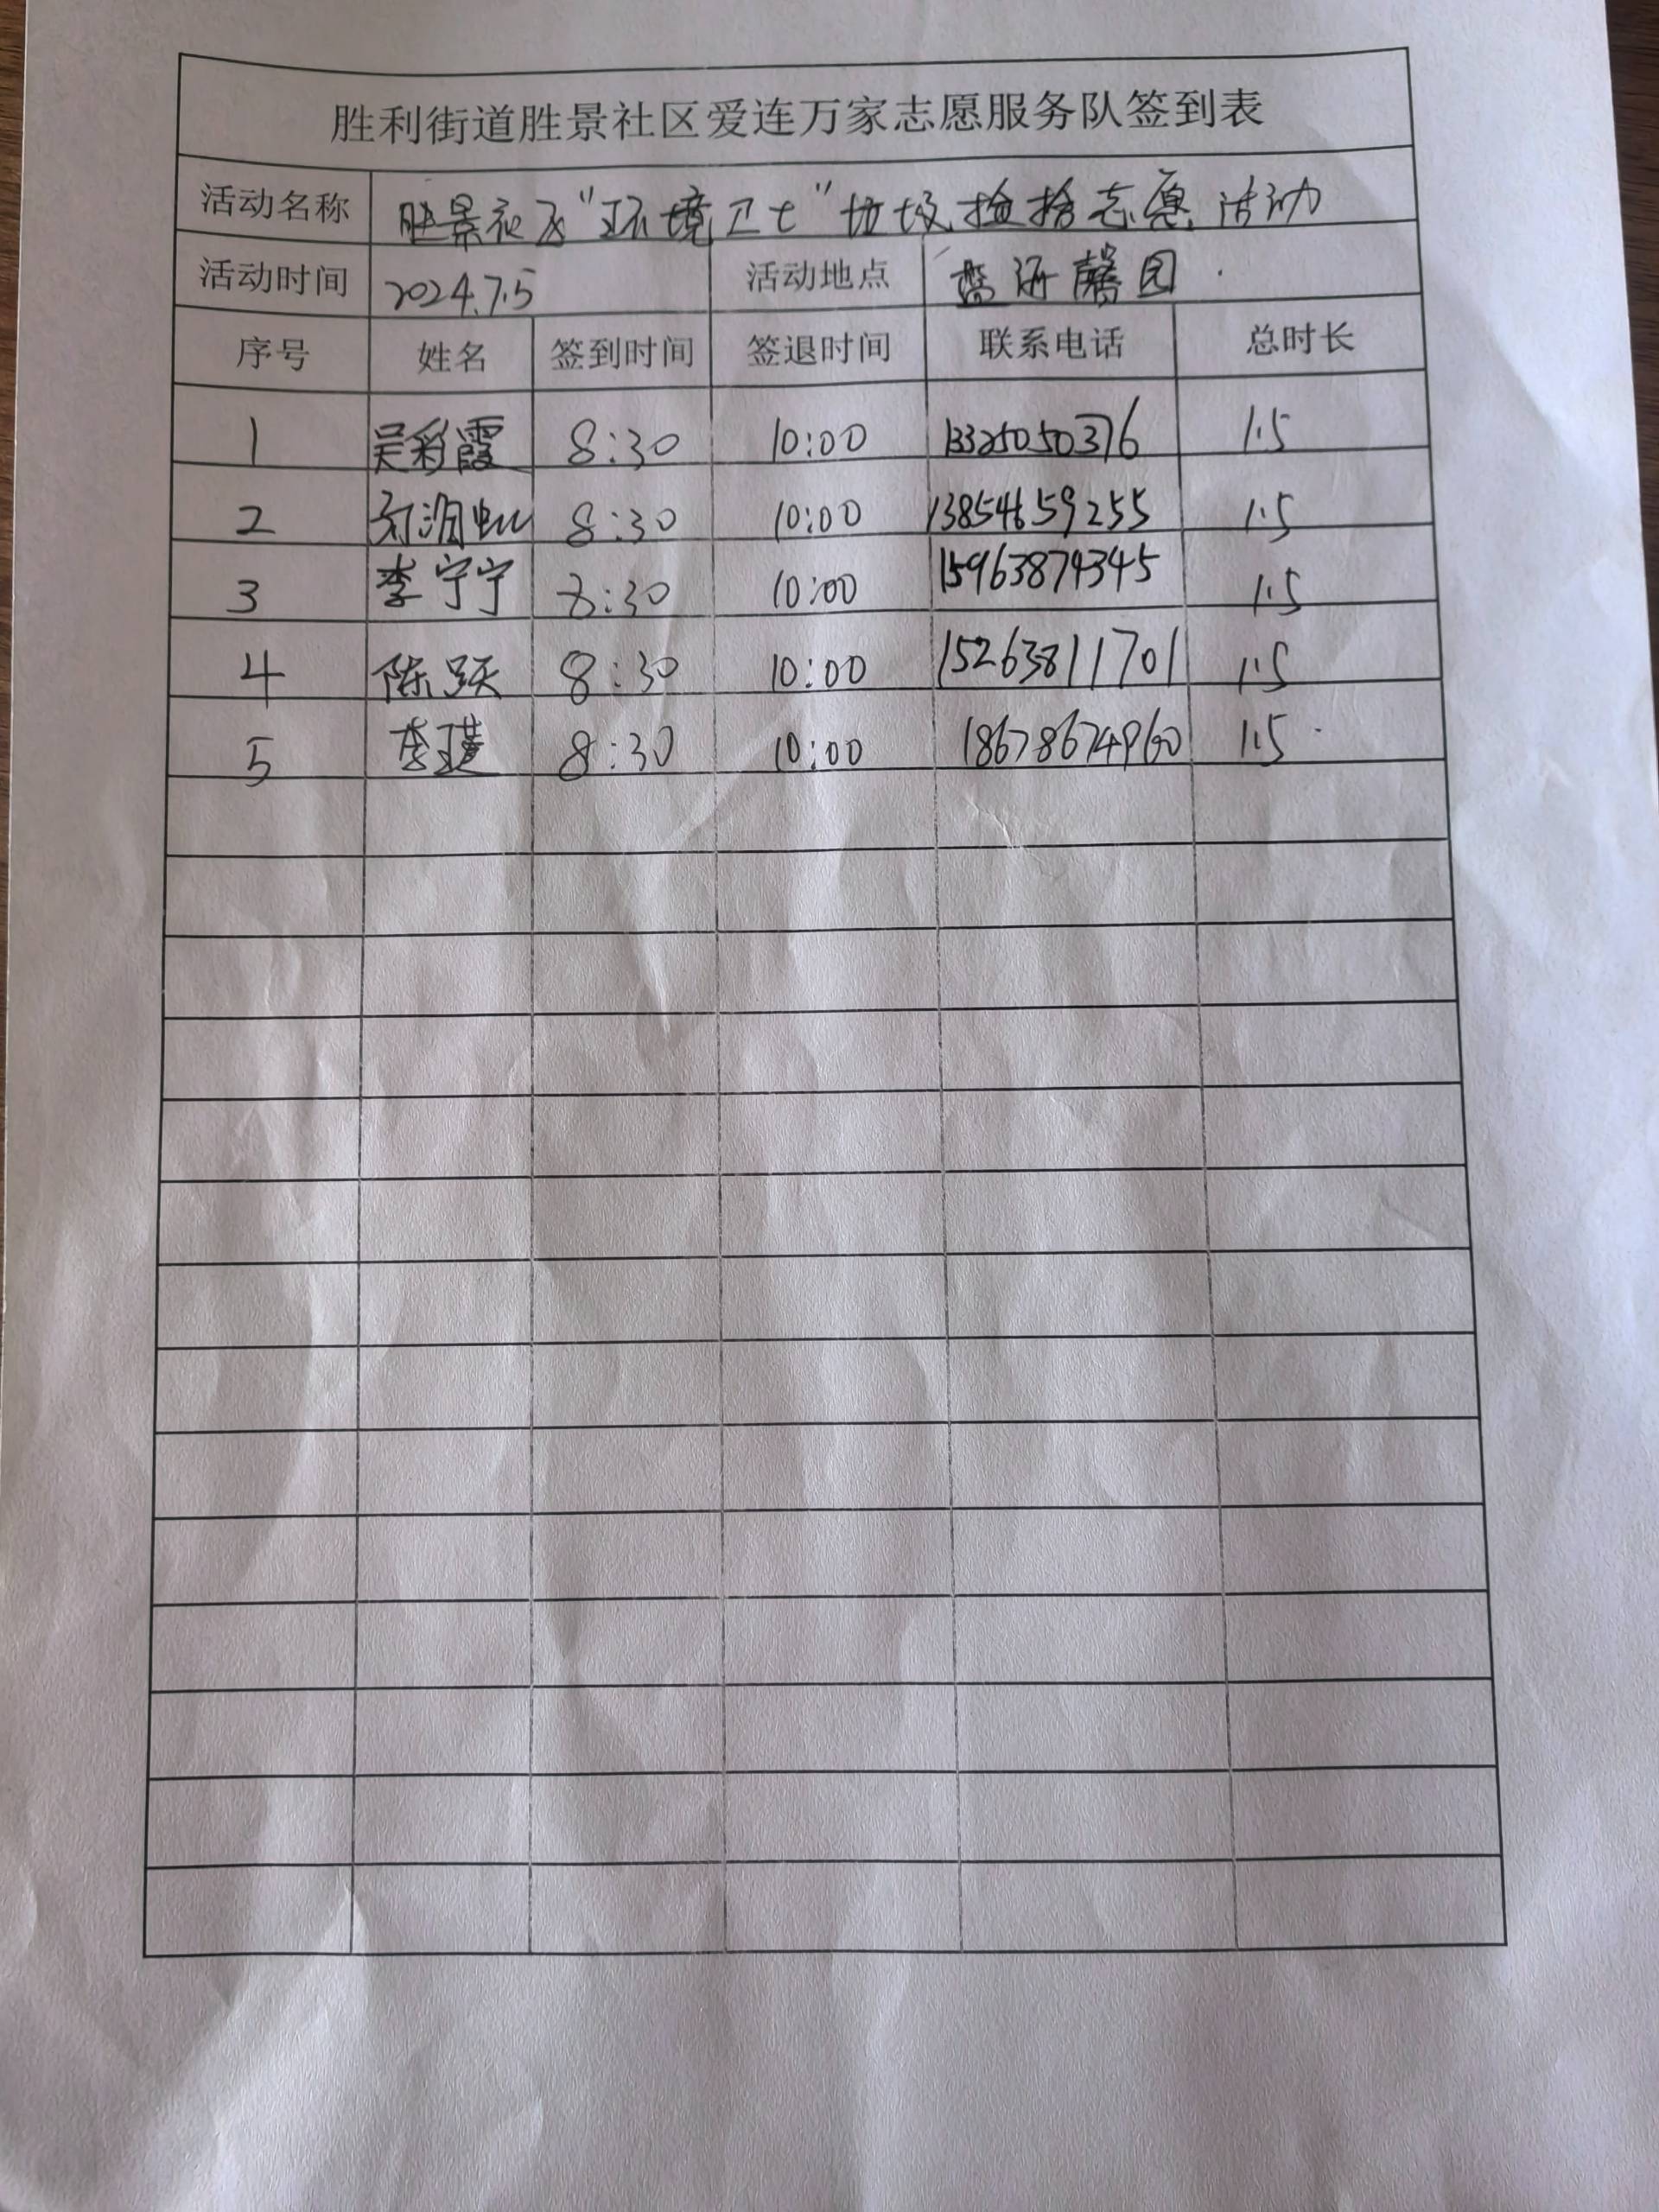 胜利街道胜景社区爱连万家志愿服务队签到表
活动名称 胜景社区“环境卫士”垃圾捡拾志愿活动
活动时间 2024.7.5 活动地点 蓝海馨园
序号 姓名 签到时间 签退时间 联系电话 总时长
1 吴彩霞 8:30 10:00 13325050376 1.5
2 8:30 10:00 13854659255 1.5
3 李宁宁 8:30 10:00 15963874345 1.5
4 陈跃 8:30 10:00 15263811701 1.5
5 李瑾 8:30 10:00 18678674960 1.5